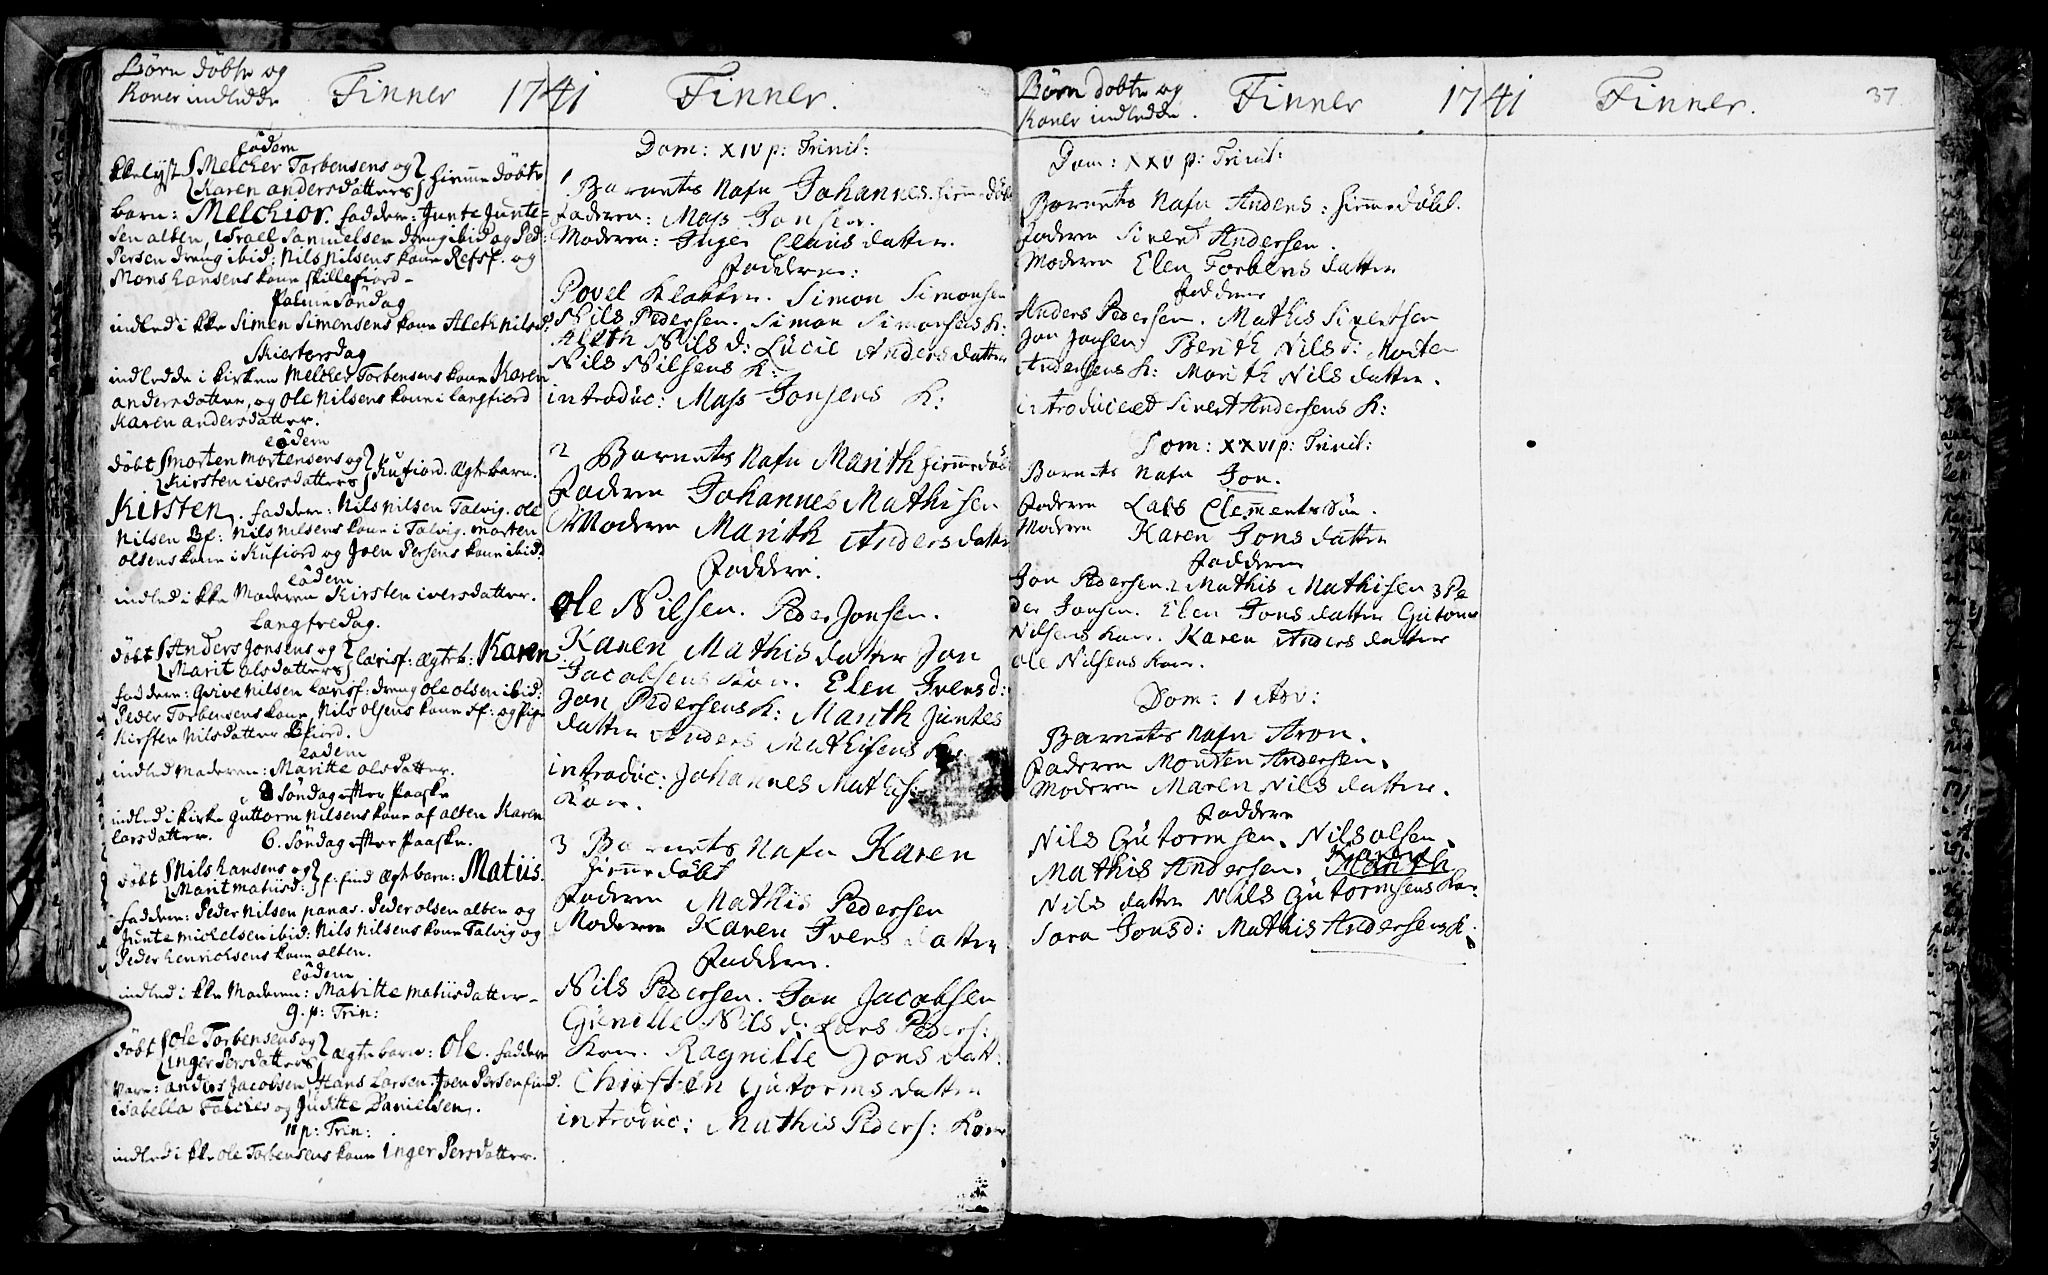 Börn döbte og
Koner indledde Finner 1741 Finner.
eodem
Melcher Torbensens og
Karen andersdatters hiemmedöbte
barn: Melchior. faddere: Junte Junte-
sen alten, Israel Samuelsen dreng ibid og Ped:
Persen dreng ibid: Nils Nilsens kone Refsf. og
Mons hansens kone skillefiord-
Palme Söndag
indled i kke Simen Simensens kone Aleth nilsd:
Skiertorsdag
indledde i kirken Melcher Torbensens kone Karen
andersdatter, og ole Nilsens kone i langfiord
Karen andersdatter.
eodem
döbt Morten mortensens og
Kirsten iversdatters Kufiord. ægte barn.
Kirsten. faddere: Nils Nilsen Talvig. ole
Nilsen Bf: Nils Nilsens kone i Talvig. morten
olsens kone i Kufiord og Joen Persens kone ibid.
eodem
indled i kke Moderen Kirsten iversdatter.
Langfredag.
döbt Anders Jonsens og
Marit olsdatters lerisf: ægteb: Karen
faddere: Gvive Nilsen lerisf: dreng ole olsen ibid:
Peder Torbensens kone Nils olsens kone og Pige
Kirsten Nilsdatter Bfiord.
eodem
indled Moderen: Maritte olsdatter.
Söndag efter Paaske
indled i kirke guttorm Nilsens kone af alten Karen
larsdatter. 6. Söndag efter Paaske.
döbt Nils hansens og
Marit matiisd: find ægte barn: Matiis.
faddere: Peder Nilsen panas. Peder olsen alten og
Junte michelsen ibid: Nils Nilsens kone Talvig og
Peder henrichsens kone alten.
eodem
indled i kke Moderen: Maritte matiisdatter-
9. p: Trin:
döbt ole Torbensens og
Inger Persdatters ægte barn: Ole. faddere
vare: anders Jacobsen Hans Larsen. Joen Persen find.
isabella Falches og Juditte Danielsen.
11 p: Trin:
indled i kke ole Torbensens kone Inger Persdatter.
Dom: XIV p: Trinit:
1 Barnets Nafn Johannes. hiemmedöbt
Faderen: Mass Jonsen.
Moderen: Inger Clausdatter.
Faddere:
Povel Klokker. Simon Simonsen
Nils Pedersen. Simon Simonsens k:
Aleth Nilsd: Lucie Andersdatter
Nils Nilsens k:
introduc: Mass Jonsens K:
2 Barnets Nafn Marith hiemmedöbt
Faderen Johannes Mathisen
Moderen Marith Andersdatter
Faddere.
Ole Nilsen. Peder Jonsen.
Karen Mathisdatter Jon
Jacobsens Kone. Elen Iversd:
Jon Pedersens k: Marith Juntes
datter Anders Mathisens kone
introduc: Johannes Mathis:
Kone.
3 Barnets Nafn Karen
hiemmedöbt
Faderen Mathis Pedersen
Moderen Karen Iversdatter
Faddere.
Nils Pedersen. Jon Jacobsen
Gunille Nilsd: Lars Peders:
kone. Ragnille Jonsdatt:
Christen Gutormsdatter
introduc: Mathis Peders: Kone
Börn döbte og
Koner indledde. Finner 1741 Finner. 37
Dom: XXV p: Trinit:
Barnets Nafn Anders: hiemmedöbt.
Faderen Sivert Andersen.
Moderen Elen Torbensdatter
Faddere
Anders Pedersen. Mathis Sivertsen
Jon Jonsen Berith Nilsd: Morten
Andersens k: Marith Nilsdatter.
introduceret Sivert Andersens k:
Dom: XXVI p: Trinit:
Barnets Nafn Jon.
Faderen Lars Clementsön.
Moderen Karen Jonsdatter
Faddere
Jon Pedersen. 2 Mathis Mathisen 3 Pe
der Jonsen. Elen Jonsdatter Gutorm
Nilsens kone. Karen Andersdatter
ole Nilsens kone.
Dom: 1 Adv:
Barnets Nafn Aron.
Faderen Mourten Andersen.
Moderen Maren Nilsdatter.
Faddere
Nils Gutormsen. Nils olsen.
Mathis Andersen. Karen Marith
Nilsdatter Nils Gutormsens kone
Sara Jonsd: Mathis Andersens k: